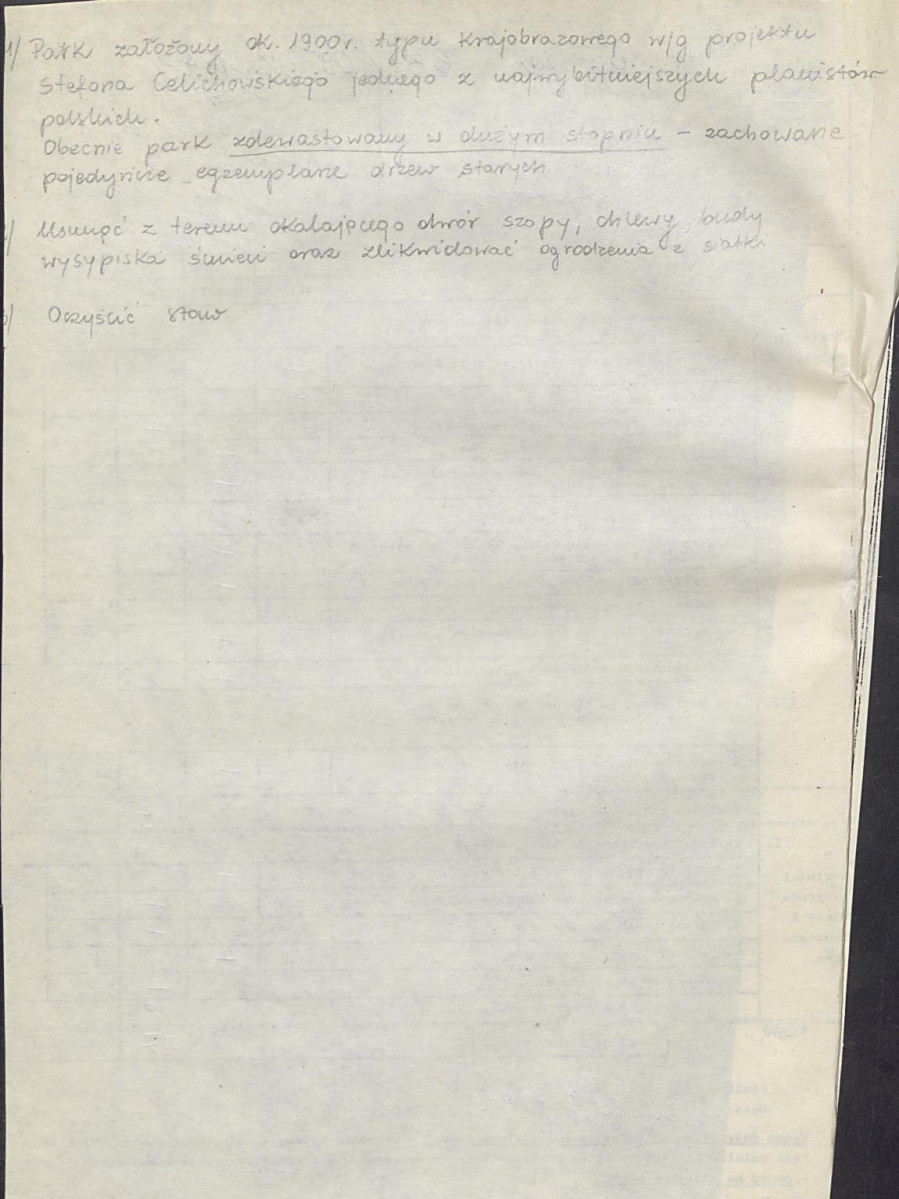 1/ Park założony ok. 1900r. typu krajobrazowego w/g projektu
Stefana Celichowskiego jednego z najwybitniejszych planistów
polskich.
Obecnie park zdewastowany w dużym stopniu - zachowane
pojedyńcze egzemplarze drzew starych
2/ Usunąć z terenu okalającego dwór szopy, chlewy, budy
wysypiska śmieci oraz zlikwidować ogrodzenia z siatki
3/ Oczyścić staw